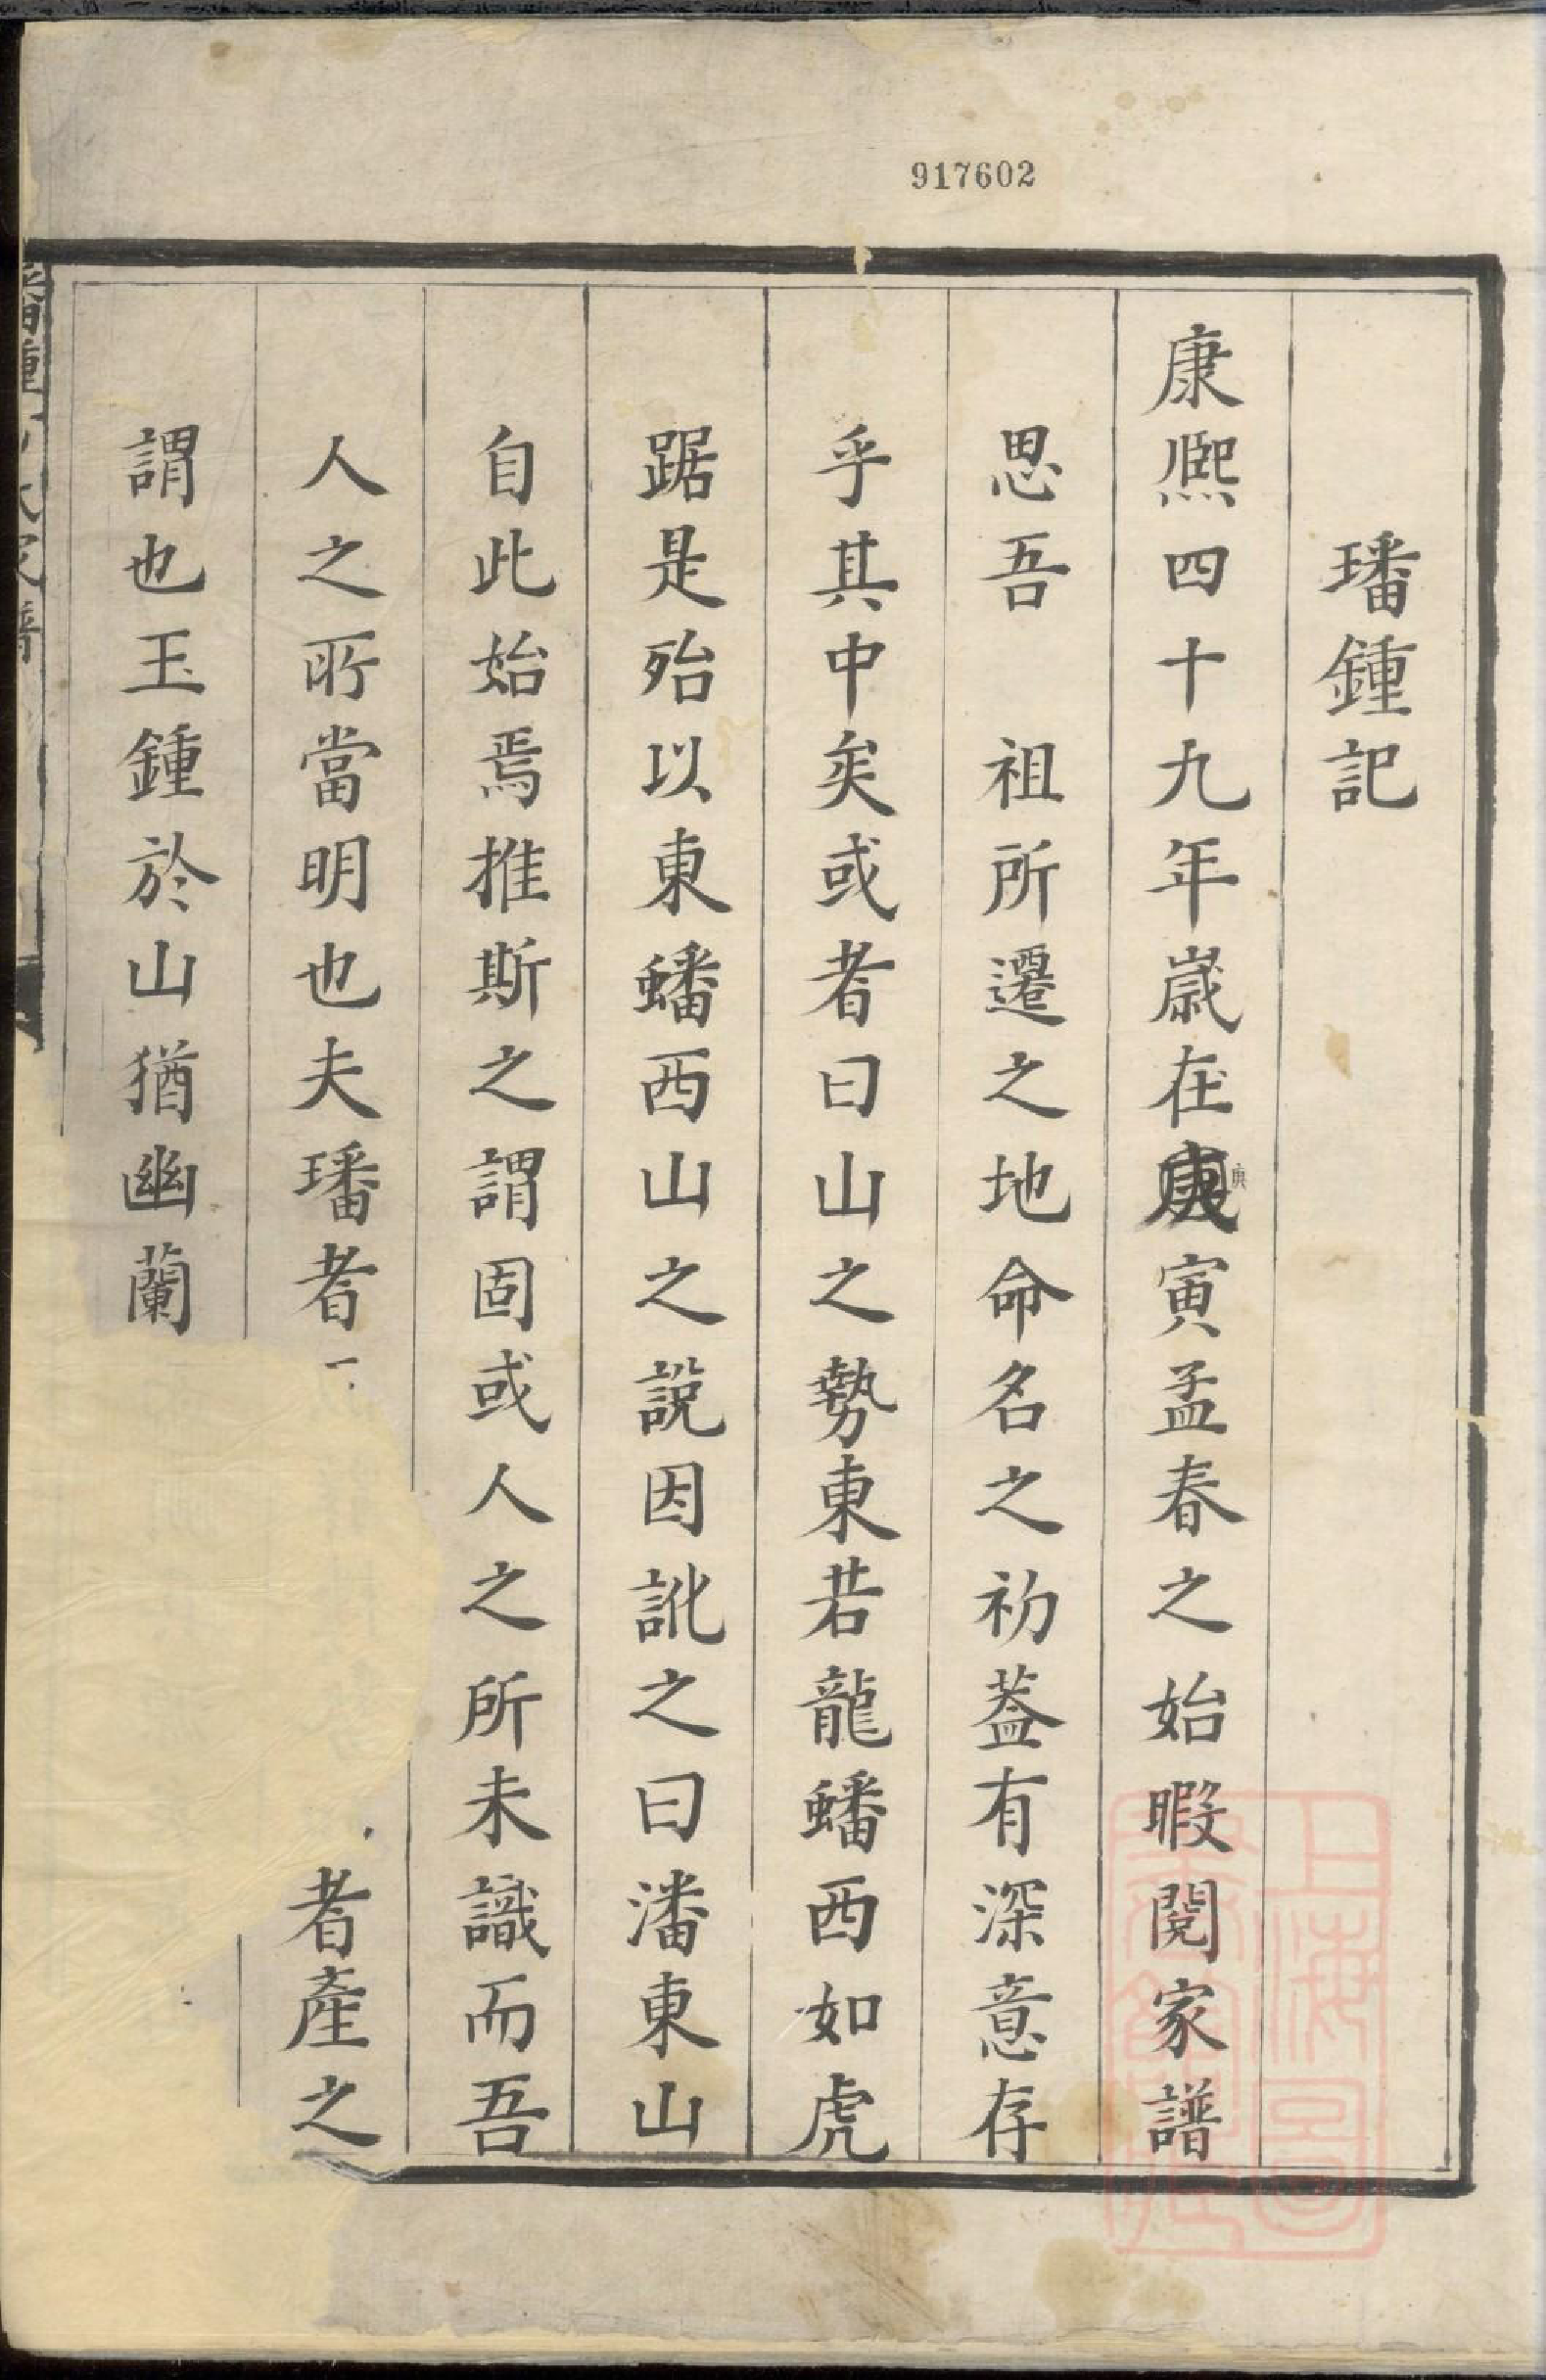 917602
璠鍾記
康熈四十九年歲在庚寅孟春之始暇閱家譜
思吾 祖所遷之地命名之初葢有深意存
乎其中矣或者曰山之勢東若龍蟠西如虎
踞是殆以東蟠西山之說因訛之曰潘東山
自此始焉推斯之謂固或人之所未識而吾
人之所當明也夫璠者
者產之
謂也玉鍾於山猶幽蘭
上海圖